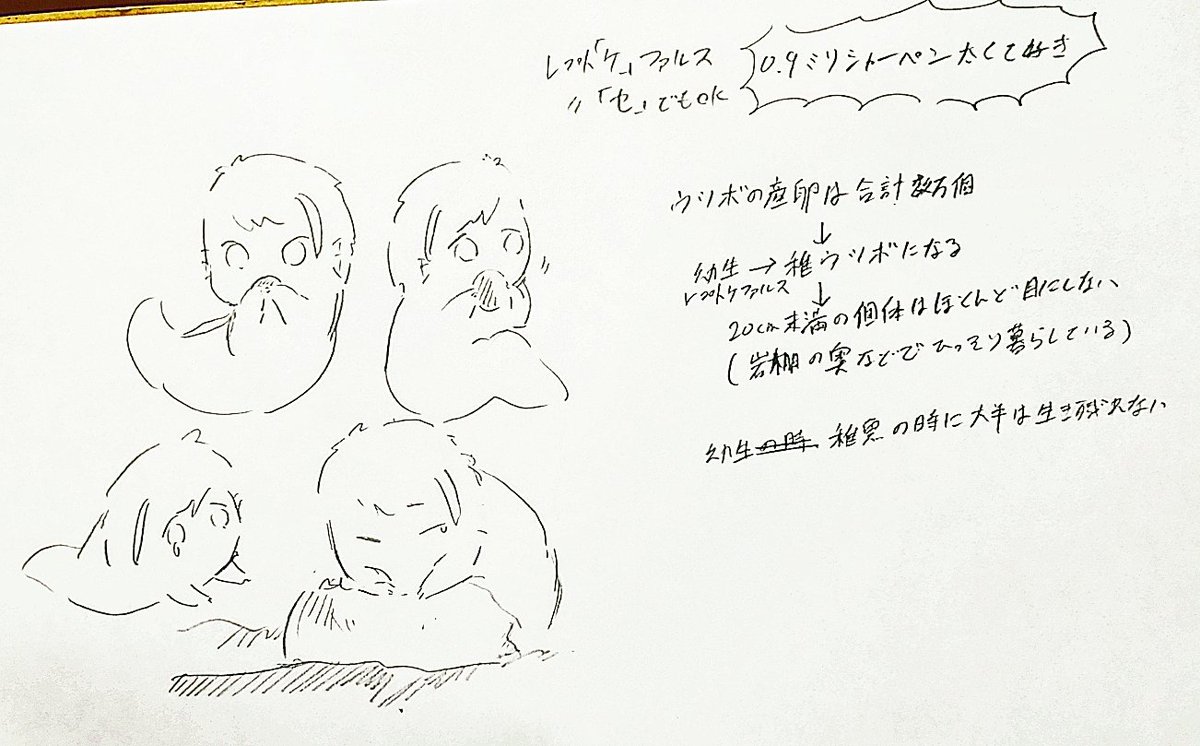 レプト「ケ」ファルス
〃「セ」でもOK
0.9ミリシャーペン太くて好き
ウツボの産卵は合計数万個
↓
幼生→稚ウツボになる
レプトケファルス
↓
20cm未満の個体はほとんど目にしない
(岩棚の奥などでひっそり暮らしている)
幼生の時 稚魚の時に大半は生き残れない